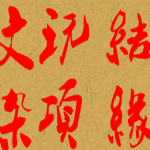 文玩
杂項
結緣